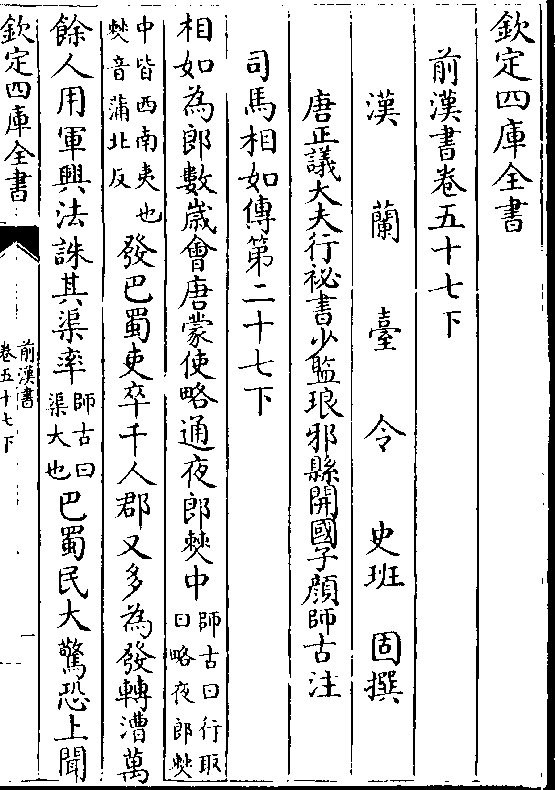 欽定四庫全書
前漢書卷五十七下
漢蘭臺令史班固撰
唐正議大夫行祕書少監琅邪縣開國子顔師古注
司馬相如傳第二十七下
相如為郎數歲會唐蒙使略通夜郎僰中師古曰行取曰略夜郎僰
中皆西南夷也僰音蒲北反發巴蜀吏卒千人郡又多為發轉漕萬
餘人用軍興法誅其渠率師古曰渠大也巴蜀民大驚恐上聞
欽定四庫全書
前漢書
卷五十七下
一